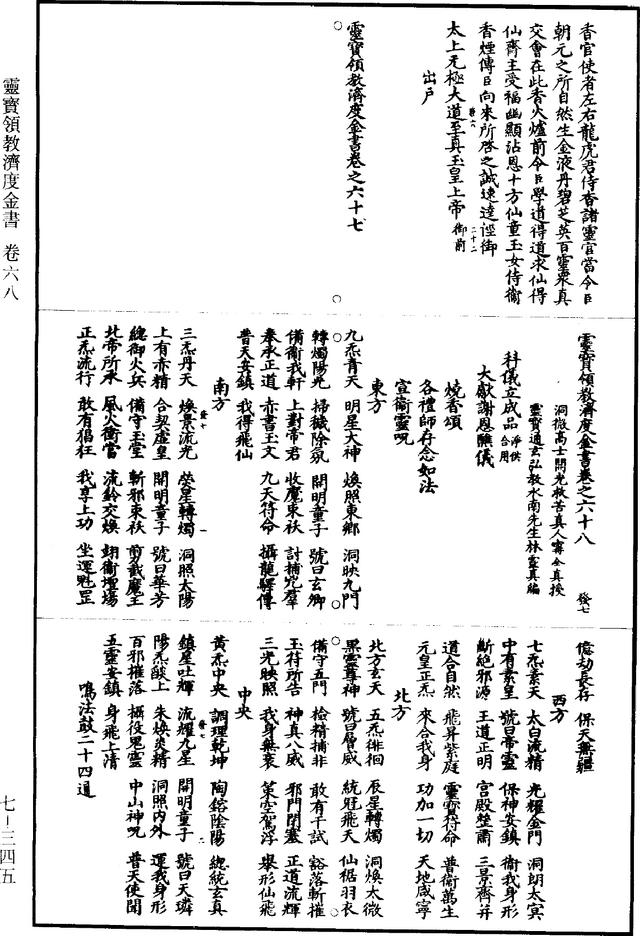 靈寶領教濟度金書 卷六八
七－三四五
香官使者左右龍虎君侍香諸靈官當令臣
朝元之所自然生金液丹碧芝英百靈衆真
交會在此香火爐前令臣學道得道求仙得
仙齋主受福幽顯沾恩十方仙童玉女侍衛
香煙傳臣向來所啓之誠速達逕御
太上无極大道至真玉皇上帝 御前
出戶
靈寶領教濟度金書卷之六十七
靈寶領教濟度金書卷之六十八 發七
洞微高士開光救苦真人甯全真授
靈寶通玄弘教水南先生林靈真編
科儀立成品 淨供合用
大獻謝恩醮儀
燒香頌
各禮師存念如法
宣衛靈呪
東方
九炁青天 明星大神 煥照東鄉 洞映九門
轉燭陽光 掃穢除氛 開明童子 號曰玄卿
備衛我軒 上對帝君 收魔束祅 討捕兇羣
奉承正道 赤書玉文 九天符命 攝龍驛傳
普天安鎮 我得飛仙
南方
三炁丹天 煥景流光 熒星轉燭 洞照太陽
上有赤精 合契虛皇 開明童子 號曰華芳
總御火兵 備守玉堂 斬邪束祅 剪截魔王
北帝所承 風火衝當 流鈴交煥 翊衛壇場
正炁流行 敢有猖狂 我享上功 坐運魁罡
億劫長存 保天無疆
西方
七炁素天 太白流精 光耀金門 洞朗太冥
中有素皇 號曰帝靈 保神安鎮 衛我身形
斷絕邪源 王道正明 宮殿楚肅 三景齊并
道合自然 飛昇紫庭 靈寶符命 普衛萬生
元皇正炁 來合我身 功加一切 天地咸寧
北方
北方玄天 五炁徘徊 辰星轉燭 洞煥太微
黑靈尊神 號曰層威 統冠飛天 仙裾羽衣
備守五門 檢精捕非 敢有干試 豁落斬摧
玉符所告 神真八威 邪門閉塞 正道流輝
三光映照 我身無衰 策空駕浮 舉形仙飛
中央
黃炁中央 調理乾坤 陶鎔陰陽 總統玄真
鎮星吐輝 流耀九星 開明童子 號曰天璘
陽炁酸上 朱煥炎精 洞照內外 運我身形
百邪摧落 攝役鬼靈 中山神呪 普天使聞
五靈安鎮 身飛上清
鳴法鼓二十四通